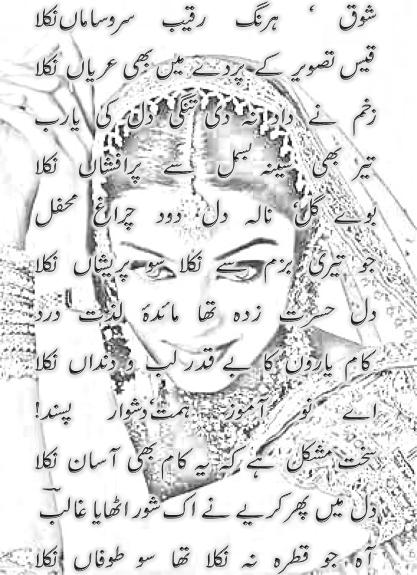 شوق ‘ ہرنگ رقیب سروساماں نکلا
قیس تصویر کے پردے میں بھی عریاں نکلا
زخم نے داد نہ دی تنگی دل کی یارب
تیر بھی سینہ بسمل سے پرافشاں نکلا
بوئے گل‘ نالہ دل‘ دود چراغ محفل
جو تیری بزم سے نکلا سو پریشاں نکلا
دل حسرت زدہ تھا مائدۂ لذت درد
کام یاروں کا بے قدر لب و دنداں نکلا
اے نو آموز ہمت‘ دشوار پسند!
سخت مشکل ہے کہ یہ کام بھی آسان نکلا
دل میں پھر کریے نے اک شور اٹھایا غالبؔ
آہ جو قطرہ نہ نکلا تھا سو طوفاں نکلا